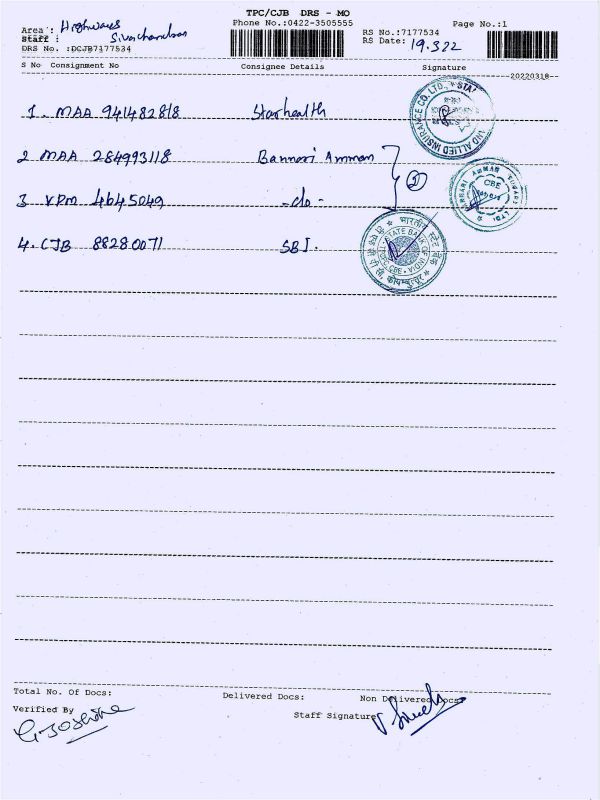 TPC/CJB DRS - MO
Area : Highways
Phone No.:0422-3505555
Page No.:1
Staff : Sivachandran
RS No.:7177534
DRS No. :DCJB7177534
RS Date: 19.3.22
S No Consignment No Consignee Details Signature
20220318
1. MAA 941482818 Starhealth
2 MAA 284993118 Bannari Amman
3 VPM 4645049 -do-
②
4. CJB 88280071 SBI.
AND ALLIED INSURANCE CO. LTD.,
CBE
STATE BANK OF INDIA
Total No. Of Docs: Delivered Docs: Non Delivered Docs:
Verified By
Staff Signature